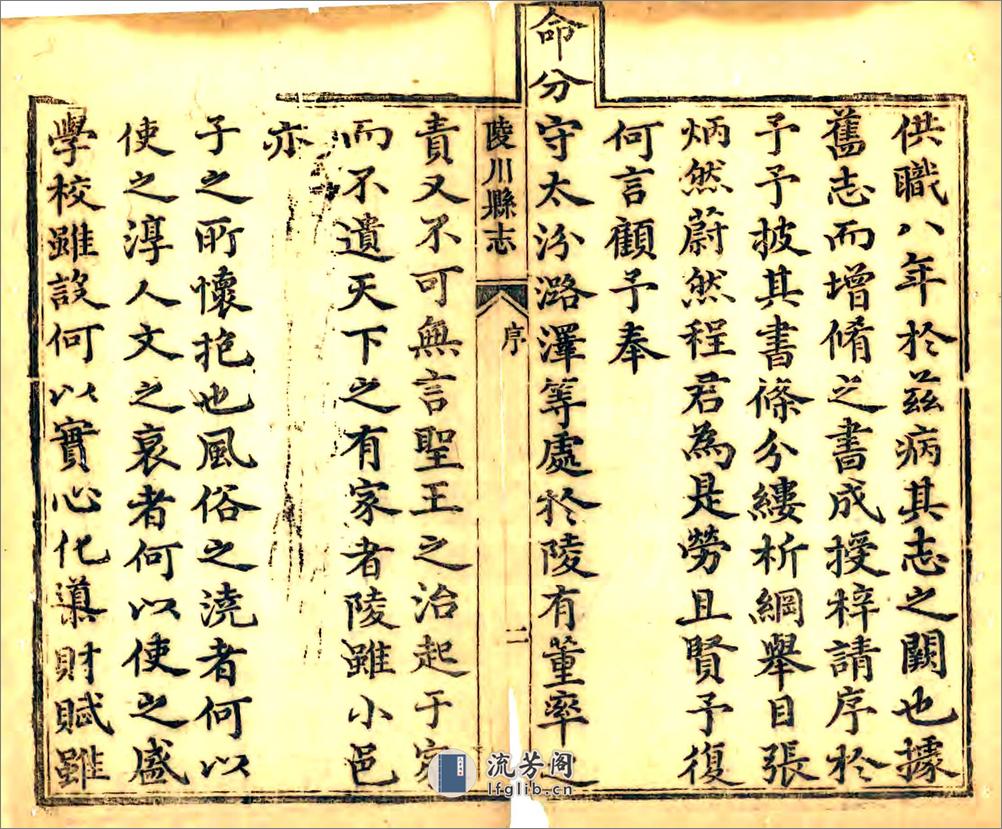 供職八年於茲病其志之闕也據
舊志而增脩之書成授梓請序於
予予披其書條分縷析綱舉目張
炳然蔚然程君為是勞且賢予復
何言顧予奉
命分守太汾潞澤等處於陵有董率之
陵川縣志 序 二
責又不可無言聖王之治起于家
而不遺天下之有家者陵雖小邑
亦
子之所懷抱也風俗之澆者何以
使之淳人文之衰者何以使之盛
學校雖設何以實心化導財賦雖
流芳阁
lfglib.cn